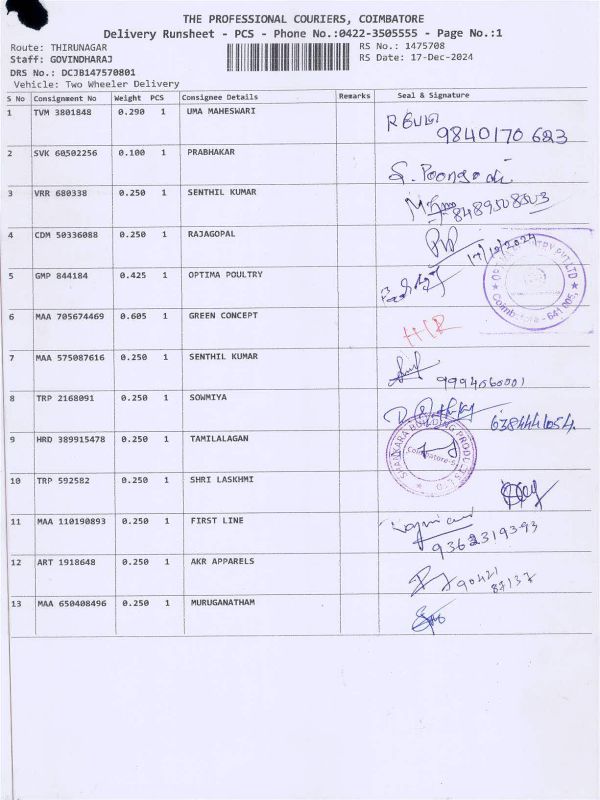 THE PROFESSIONAL COURIERS, COIMBATORE
Delivery Runsheet - PCS - Phone No.:0422-3505555 - Page No.:1
Route: THIRUNAGAR RS No.: 1475708
Staff: GOVINDHARAJ RS Date: 17-Dec-2024
DRS No.: DCJB147570801
Vehicle: Two Wheeler Delivery
S No Consignment No Weight PCS Consignee Details Remarks Seal & Signature
1 TVM 3801848 0.290 1 UMA MAHESWARI
9840170 623
2 SVK 60502256 0.100 1 PRABHAKAR
S. Poongodi
3 VRR 680338 0.250 1 SENTHIL KUMAR
8489508503
4 CDM 50336088 0.250 1 RAJAGOPAL
17/12/2024
5 GMP 844184 0.425 1 OPTIMA POULTRY
Coimbatore - 641 005
6 MAA 705674469 0.605 1 GREEN CONCEPT
7 MAA 575087616 0.250 1 SENTHIL KUMAR
9994060001
8 TRP 2168091 0.250 1 SOWMIYA
6384441054.
9 HRD 389915478 0.250 1 TAMILALAGAN
BUILDING PRODUCTS
Coimbatore-5
10 TRP 592582 0.250 1 SHRI LASKHMI
11 MAA 110190893 0.250 1 FIRST LINE
9362319393
12 ART 1918648 0.250 1 AKR APPARELS
90421
87137
13 MAA 650408496 0.250 1 MURUGANATHAM